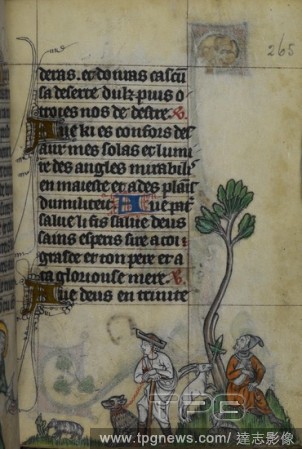 265
deras. et douras cascu
sa deserre dulz puis o
troies nos de destre. R.
Aue ki es consois des
aur mes solas et lumi
re des angles mirabili
en maieste et ades plais
dumilitei. Aue pat
salue li fis salue deus
sains esperis sire a toi
grasde et ton pere et a
ta gloriouse mere. R.
Aue deus en trinite
TPG
www.tpgnews.com/ 達志影像